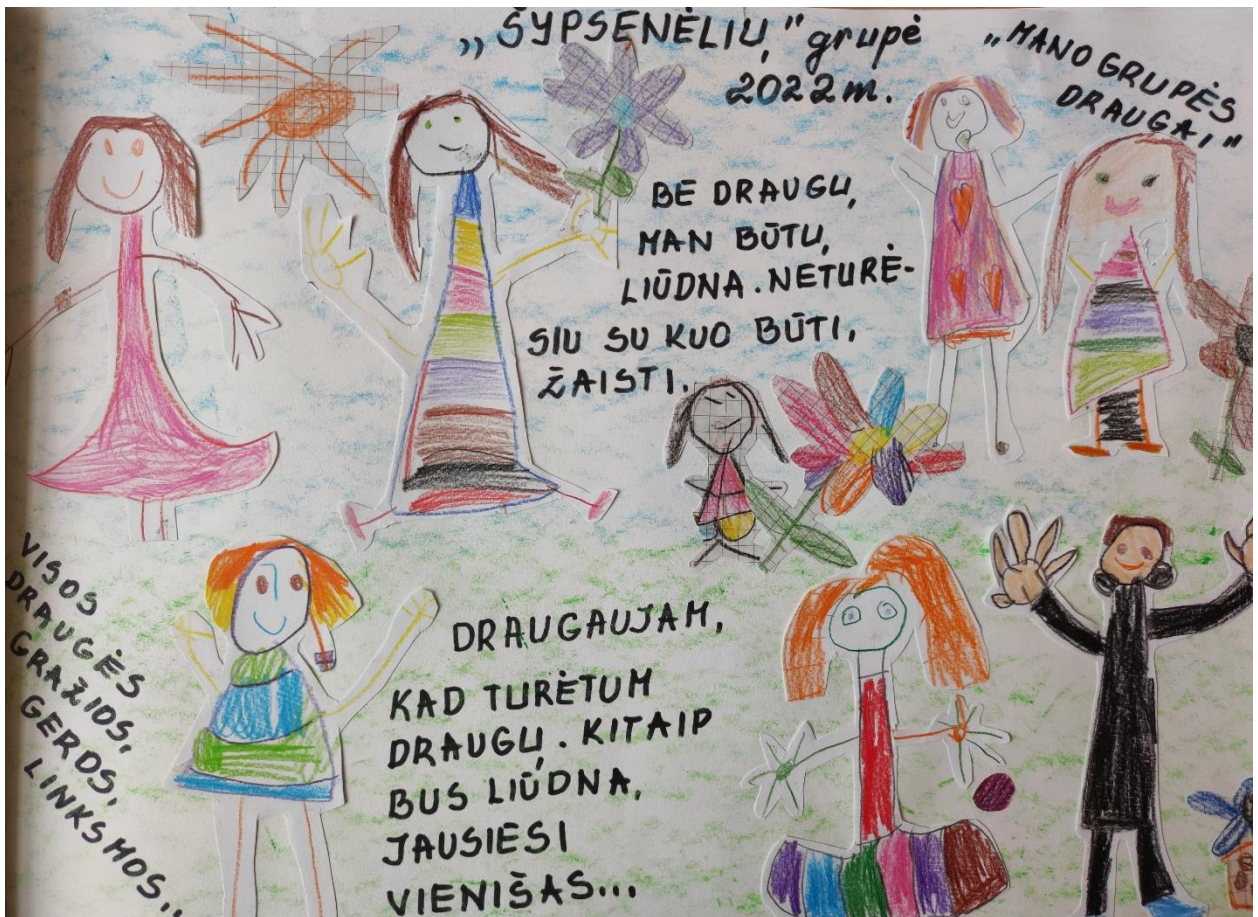 „ŠYPSENĖLIŲ” grupė
2022m.
„MANO GRUPĖS
DRAUGAI”
BE DRAUGŲ,
MAN BŪTŲ,
LIŪDNA. NETURĖ-
SIU SU KUO BŪTI,
ŽAISTI.
VISOS
DRAUGĖS
GRAŽIOS,
GEROS,
LINKSMOS...
DRAUGAUJAM,
KAD TURĖTUM
DRAUGŲ. KITAIP
BUS LIŪDNA,
JAUSIESI
VIENIŠAS...